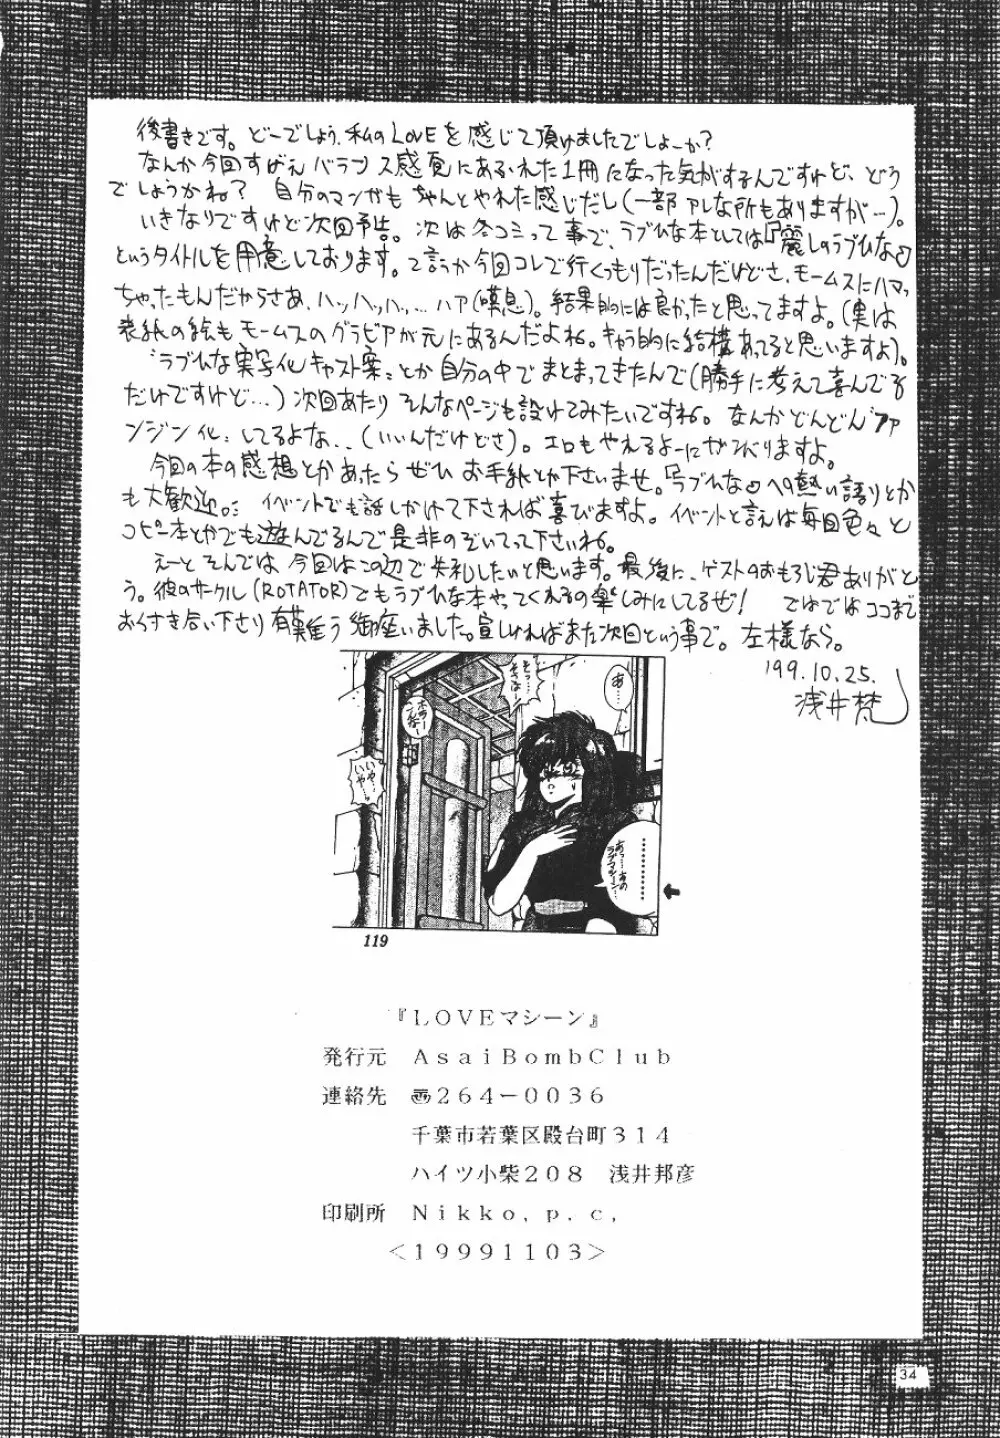 後書きです。どーでしょう、私のLOVEを感じて頂けましたでしょーか?
なんか今回すげえバランス感覚にあふれた1冊になった気がするんですけど、どう
でしょうかね? 自分のマンガもちゃんとやれた感じだし(一部アレな所もありますが…)。
いきなりですけど次回予告。次は冬コミって事で、ラブひな本としては『麗しのラブひな♡』
というタイトルを用意しております。て言うか今回コレで行くつもりだったんだけどさ、モームスにハマっ
ちゃったもんだからさあ、ハッハッハッ…ハア(嘆息)。結果的には良かったと思ってますよ。(実は
表紙の絵もモームスのグラビアが元にあるんだよね。キャラ的に結構あってると思いますよ)。
"ラブひな実写化キャスト案"とか自分の中でまとまってきたんで(勝手に考えて喜んでる
だけですけど…)次回あたりそんなページも設けてみたいですね。なんかどんどん"ファ
ンジン化"してるよな、、(いいんだけどさ)。エロもやえるよーにガンバりますよ。
今回の本の感想とかあったらぜひお手紙とか下さいませ。『ラブひな♡』への熱い語りとか
も大歓迎。イベントでも話しかけて下されば喜びますよ。イベントと言えば毎回色々と
コピー本とかでも遊んでるんで是非のぞいてって下さいね。
えーとそんでは今回はこの辺で失礼したいと思います。最後に、ゲストのおもろじ君ありがと
う。彼のサークル(ROTATOR)でもラブひな本やってくれるの楽しみにしてるぜ! ではではココまで
おくつき合い下さり有難う御座いました。宜しければまた次回という事で。左様なら。
'99.10.25.
浅井梵
あ…
そっ…
そさなー
いや…
いや…
…………
あっ…あの
ラブマシーン…
119
『LOVEマシーン』
発行元 AsaiBombClub
連絡先 〠264-0036
千葉市若葉区殿台町314
ハイツ小柴208 浅井邦彦
印刷所 Nikko,p.c,
<19991103>
34